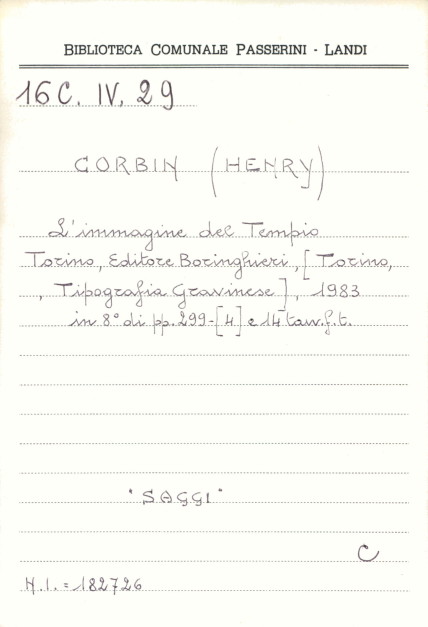 BIBLIOTECA COMUNALE PASSERINI - LANDI
16C. IV. 29
CORBIN (HENRY)
L'immagine del Tempio
Torino, Editore Boringhieri, [Torino,
, Tipografia Gravinese], 1983
in 8° di pp. 299-[4] e 14 tav. f. t.
"SAGGI"
C
N.I. = 182726